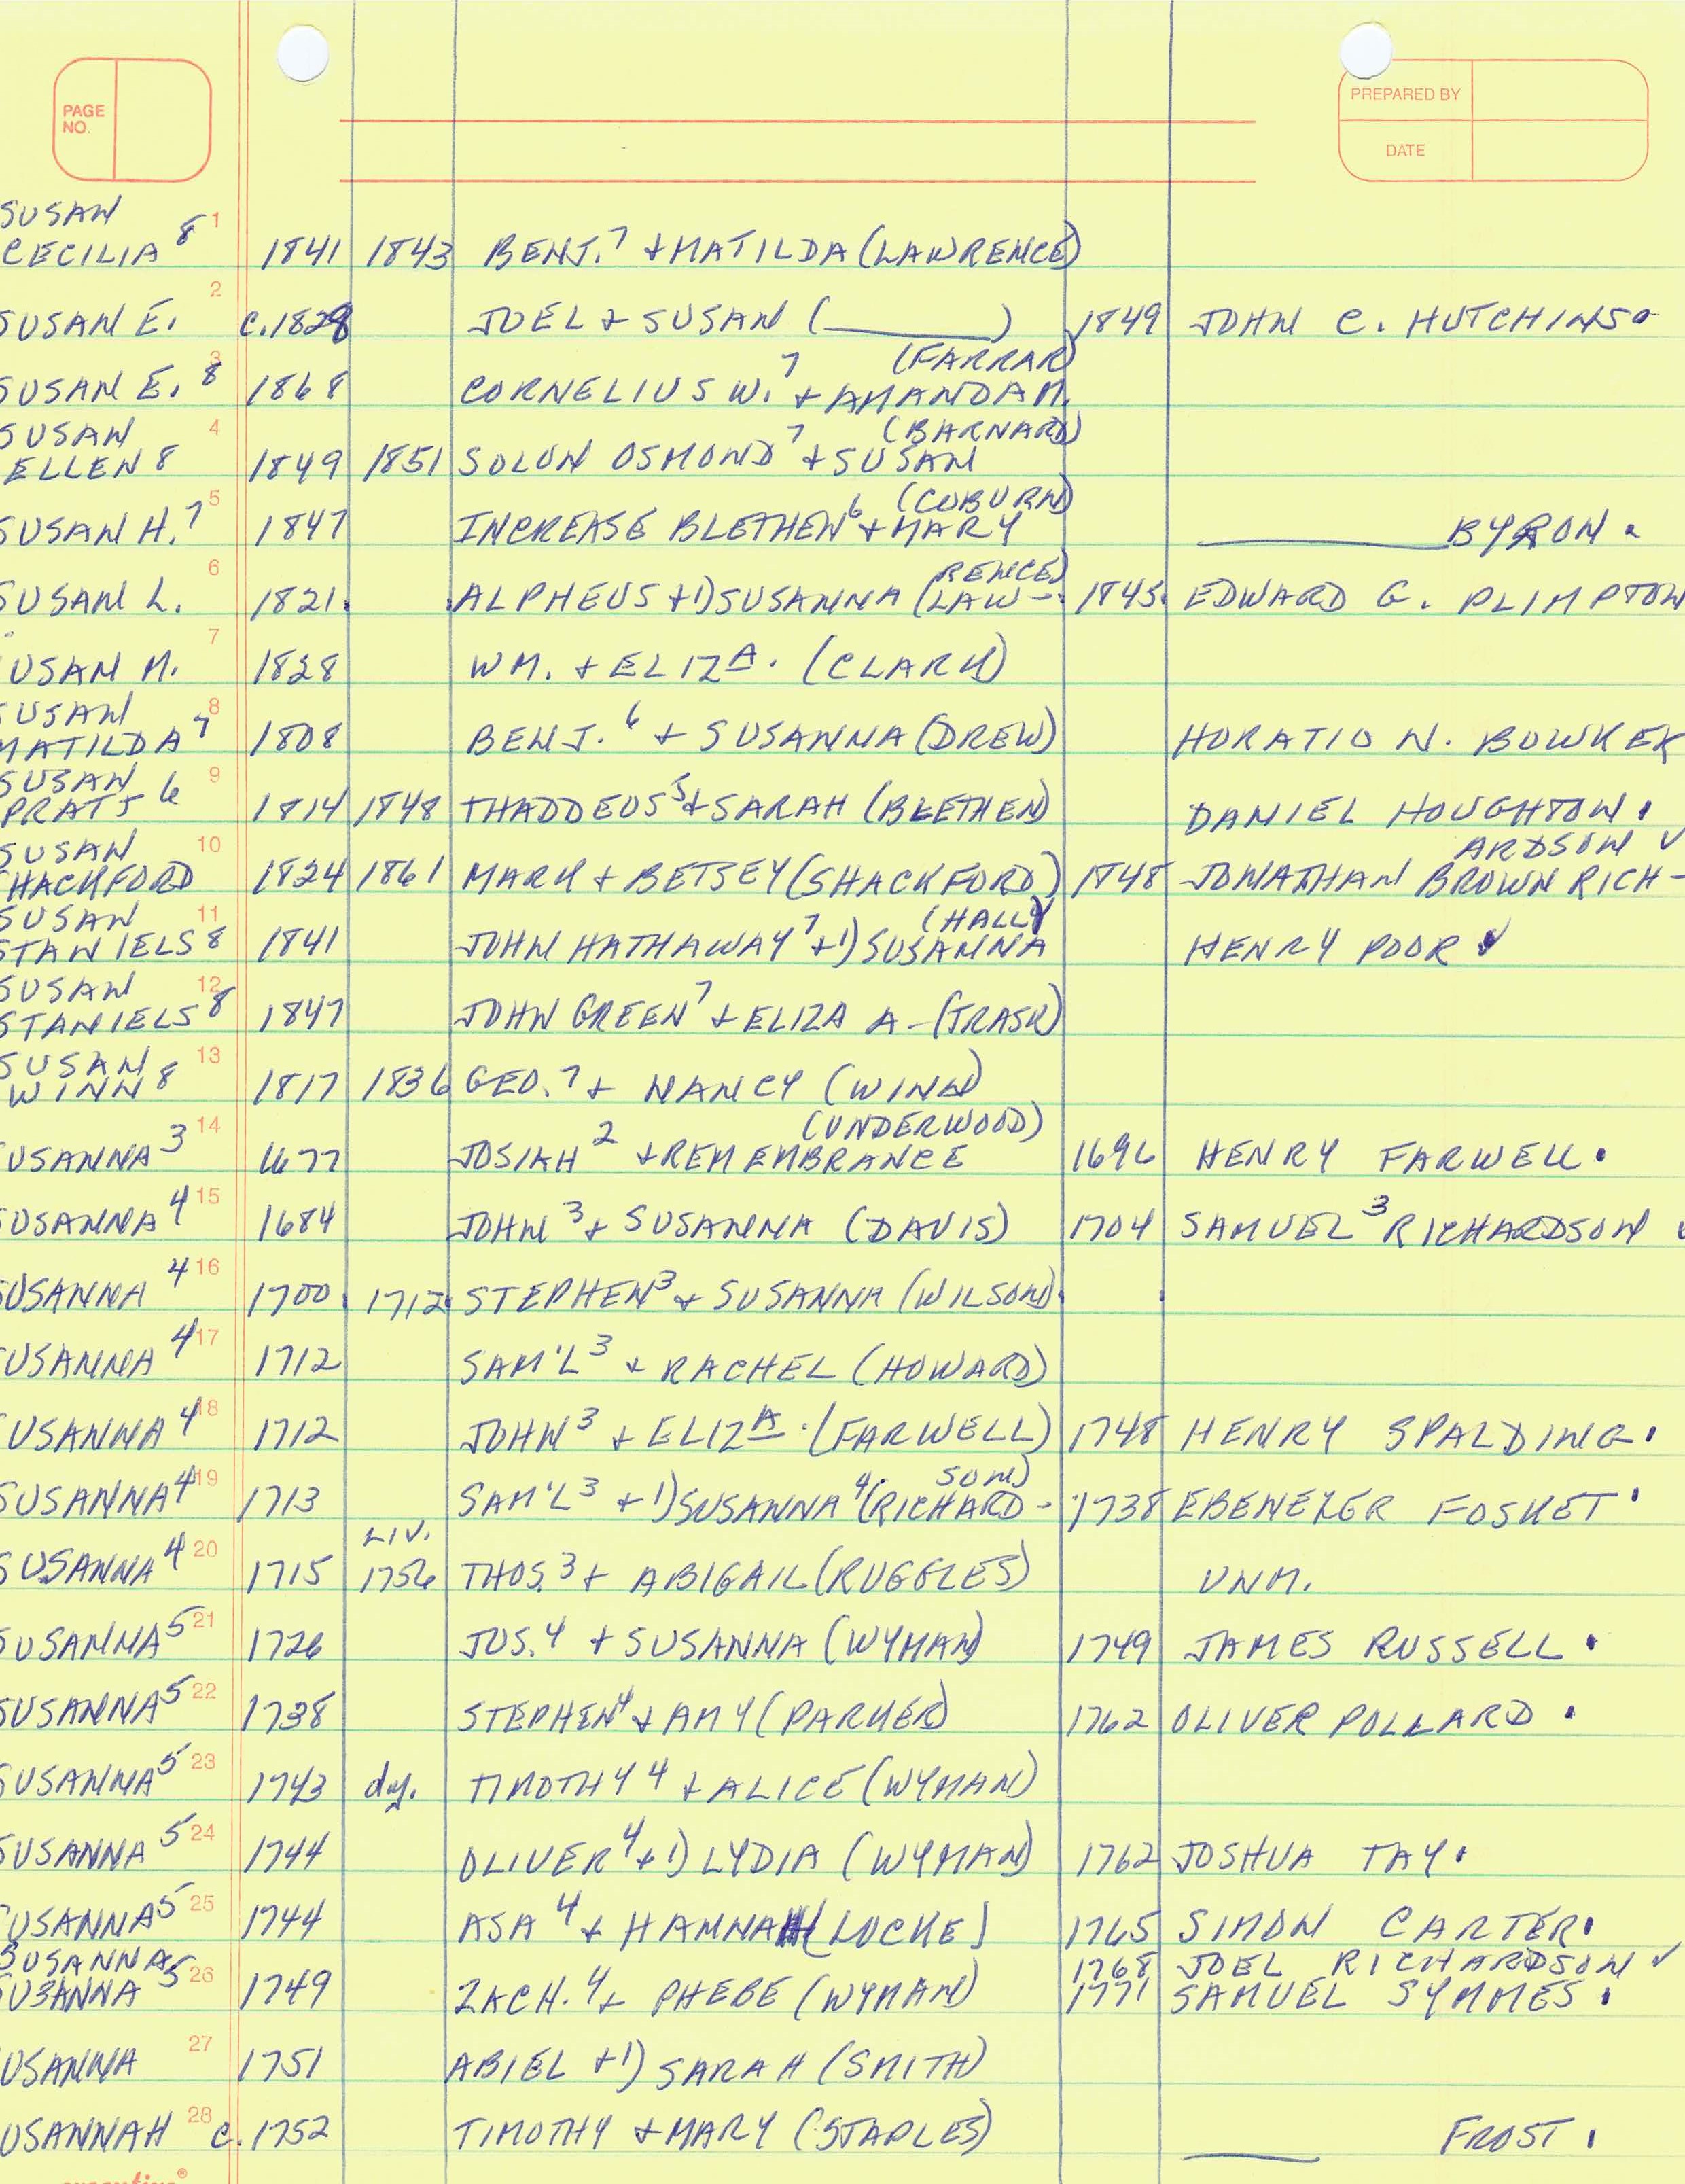 PAGE NO.
PREPARED BY
DATE
SUSAN
CECILIA 8 1 1841 1843 BENJ.7 + MATILDA (LAWRENCE)
SUSAN E. 2 c.1828 JOEL + SUSAN (______) 1849 JOHN C. HUTCHINS
(FARRAR)
SUSAN E. 8 3 1868 CORNELIUS W.7 + AMANDA M.
SUSAN 4 (BARNARD)
ELLEN 8 1849 1851 SOLON OSMOND7 + SUSAN
(COBURN)
SUSAN H.7 5 1847 INCREASE BLETHEN6 + MARY ______ BYRON.
RENCE)
SUSAN L. 6 1821. ALPHEUS + 1) SUSANNA (LAW- 1845. EDWARD G. PLIMPTON
USAN M. 7 1828 WM. + ELIZA. (CLARK)
USAN 8
MATILDA7 1808 BENJ.6 + SUSANNA (DREW) HORATIO N. BOWKER
SUSAN 9
PRATT 6 1814 1848 THADDEUS5 + SARAH (BLETHEN) DANIEL HOUGHTON.
SUSAN 10 ARDSON ✓
HACKFORD 1824 1861 MARK + BETSEY (SHACKFORD) 1848 JONATHAN BROWN RICH-
SUSAN 11 (HALL)
STANIELS 8 1841 JOHN HATHAWAY7 + 1) SUSANNA HENRY POOR ✓
SUSAN 12
STANIELS 8 1847 JOHN GREEN7 + ELIZA A. (TRASK)
SUSAN 13
WINN 8 1817 1836 GEO.7 + NANCY (WINN)
(UNDERWOOD)
USANNA3 14 1677 JOSIAH2 + REMEMBRANCE 1696 HENRY FARWELL.
USANNA4 15 1684 JOHN3 + SUSANNA (DAVIS) 1704 SAMUEL3 RICHARDSON ✓
USANNA4 16 1700. 1712 STEPHEN3 + SUSANNA (WILSON).
USANNA4 17 1712 SAM'L3 + RACHEL (HOWARD)
USANNA4 18 1712 JOHN3 + ELIZA. (FARWELL) 1748 HENRY SPALDING.
SON)
SUSANNA4 19 1713 SAM'L3 + 1) SUSANNA4 (RICHARD- 1738 EBENEZER FOSKET.
LIV.
SUSANNA4 20 1715 1756 THOS.3 + ABIGAIL (RUGGLES) UNM.
SUSANNA5 21 1726 JOS.4 + SUSANNA (WYMAN) 1749 JAMES RUSSELL.
SUSANNA5 22 1738 STEPHEN4 + AMY (PARKER) 1762 OLIVER POLLARD.
SUSANNA5 23 1743 dy. TIMOTHY4 + ALICE (WYMAN)
SUSANNA5 24 1744 OLIVER4 + 1) LYDIA (WYMAN) 1762 JOSHUA TAY.
USANNA5 25 1744 ASA4 + HANNAH (LOCKE) 1765 SIMON CARTER.
SUSANNA 1768 JOEL RICHARDSON ✓
SUSANNA5 26 1749 ZACH.4 + PHEBE (WYMAN) 1771 SAMUEL SYMMES.
USANNA 27 1751 ABIEL + 1) SARAH (SMITH)
USANNAH 28 c. 1752 TIMOTHY + MARY (STAPLES) ______ FROST.